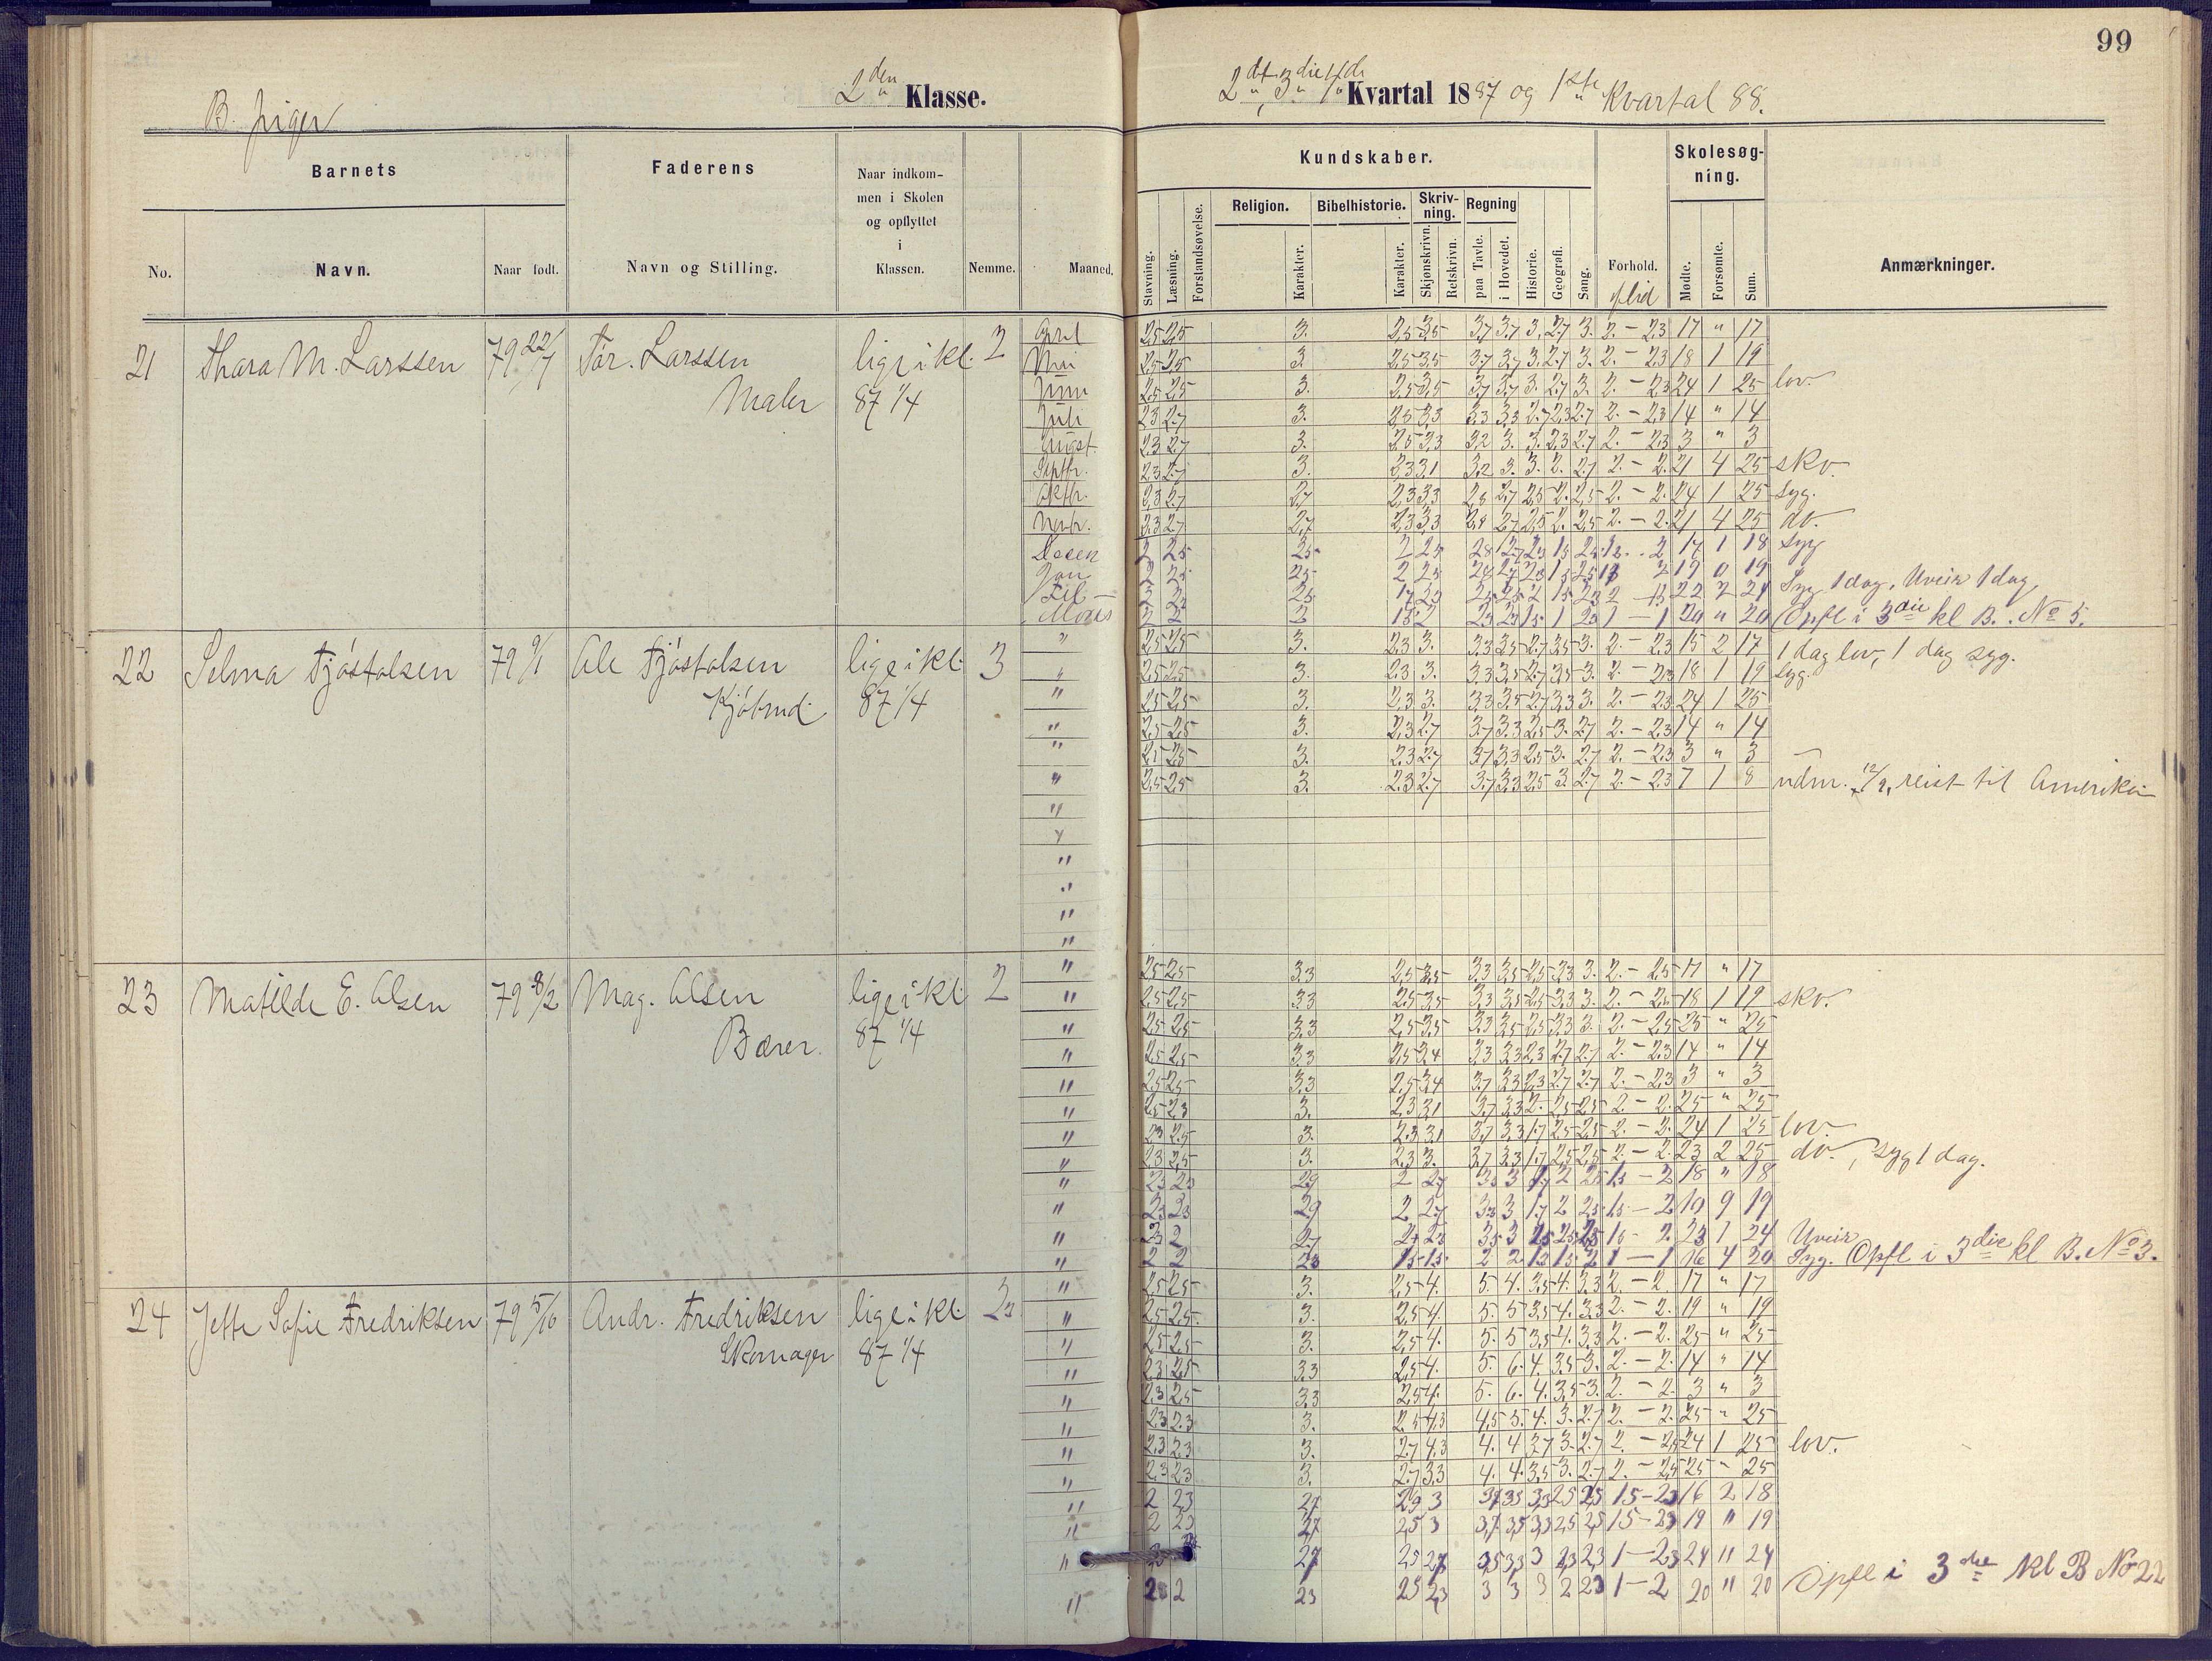 99
2den Klasse.
2det, 3die 4de Kvartal 1887 og 1ste Kvartal 88.
B. Piger
Barnets
Faderens
Naar indkommen i Skolen og opflyttet i Klassen.
Nemme.
Maaned.
No.
Navn.
Naar født.
Navn og Stilling.
Kundskaber.
Stavning.
Læsning.
Forstandsøvelse.
Religion.
Karakter.
Bibelhistorie.
Karakter.
Skrivning.
Skjønskrivn.
Retskrivn.
Regning
paa Tavle.
i Hovedet.
Historie.
Geografi.
Sang.
Forhold.
flid
Skolesøgning.
Mødte.
Forsømte.
Sum.
Anmærkninger.
21 Thara M. Larssen 79 22/7 Tor. Larssen lige i kl. 2
Maler 87 1/4
April 2,5 2,5 3. 2,5 3,5 3,7 3,7 3. 2,7 3. 2. – 2,3 17 " 17
Mai 2,5 2,5 3. 2,5 3,5 3,7 3,7 3. 2,7 3. 2. – 2,3 18 1 19
Juni 2,5 2,5 3. 2,5 3,5 3,7 3,7 3. 2,7 3. 2. – 2,3 24 1 25 lov.
Juli 2,3 2,7 3. 2,5 3,3 3,3 3,3 2,7 2,3 2,7 2. – 2,3 14 " 14
Augst. 2,3 2,7 3. 2,5 3,3 3,2 3. 3. 2,3 2,7 2. – 2,3 3 " 3
Septbr. 2,3 2,7 3. 2,3 3,1 3,2 3. 3. 2. 2,7 2. – 2. 21 4 25 sko.
Oktbr. 2,3 2,7 2,7 2,3 3,3 2,8 2,7 2,5 2. 2,5 2. – 2. 24 1 25 syg.
Novbr. 2,3 2,7 2,7 2,3 3,3 2,8 2,7 2,5 2. 2,5 2. – 2. 21 4 25 do.
Decen 17 1 18 Syg
Jan 19 0 19
Feb 22 2 24 Syg 1 dag, Uveir 1 dag
Mars 20 " 20 Opfl i 3die kl B. No 5.
22 Selma Tjøstolsen 79 9/1 Ole Tjøstolsen lige i kl. 3
Kjøbmd. 87 1/4
2,5 2,5 3. 2,3 3. 3,3 3,5 2,7 3,5 3. 2. – 2,3 15 2 17 1 dag lov, 1 dag syg.
2,5 2,5 3. 2,3 3. 3,3 3,5 2,7 3,5 3. 2. – 2,3 18 1 19 syg.
2,5 2,5 3. 2,3 3. 3,3 3,5 2,7 3,3 3. 2. – 2,3 24 1 25
2,5 2,5 3. 2,3 2,7 3,7 3,3 2,5 3. 2,7 2. – 2,3 14 " 14
2,5 2,5 3. 2,3 2,7 3,7 3,3 2,5 3. 2,7 2. – 2,3 3 " 3
2,5 2,5 3. 2,3 2,7 3,7 3,3 2,5 3. 2,7 2. – 2,3 7 1 8 udm. 12/9, reist til Amerika
23 Matilde E. Olsen 79 8/2 Mag. Olsen lige i kl. 2
Bærer. 87 1/4
2,5 2,5 3,3 2,5 3,5 3,3 3,5 2,5 3,3 3. 2. – 2,5 17 " 17
2,5 2,5 3,3 2,5 3,5 3,3 3,5 2,5 3,3 3. 2. – 2,5 18 1 19 sko.
2,5 2,5 3,3 2,5 3,5 3,3 3,5 2,5 3,3 3. 2. – 2,5 25 " 25
2,5 2,5 3,3 2,5 3,4 3,3 3,3 2,3 2,7 2,7 2. – 2,3 14 " 14
2,5 2,5 3,3 2,5 3,4 3,7 3,3 2,3 2,7 2,7 2. – 2,3 3 " 3
2,5 2,3 3. 2,3 3,1 3,7 3,3 2. 2,5 2,5 2. – 2. 25 " 25
2,3 2,5 3. 2,3 3,1 3,7 3,3 1,7 2,5 2,5 2. – 2. 24 1 25 lov.
2,3 2,5 3. 2,3 3. 3,7 3,3 1,7 2,5 2,5 2. – 2. 23 2 25 do., syg 1 dag.
18 " 18
10 9 19
23 1 24 Uveir
16 4 20 Syg. Opfl i 3die kl B. No 3.
24 Jette Sofie Fredriksen 79 5/10 Andr. Fredriksen lige i kl.
Skomager 87 1/4
2,5 2,5 3. 2,5 4. 5. 4. 3,5 4. 3,3 2. – 2. 17 " 17
2,5 2,5 3. 2,5 4. 5. 5 3,5 4. 3,3 2. – 2. 19 " 19
2,5 2,5 3. 2,5 4. 5. 5 3,5 4. 3,3 2. – 2. 25 " 25
2,3 2,5 3,3 2,5 4. 5. 6. 4. 3,5 3. 2. – 2. 14 " 14
2,3 2,5 3,3 2,5 4. 5. 6. 4. 3,5 3. 2. – 2. 3 " 3
2,3 2,3 3. 2,5 4,3 4,5 5. 4. 3. 2,7 2. – 2. 25 " 25
2,3 2,3 3. 2,7 4,3 4. 4 3,7 3. 2,7 2. – 2,5 24 1 25 lov.
2,3 2,3 3. 2,7 3,3 4. 4. 3,5 3. 2,7 2. – 2,5 25 " 25
2 2,3 27 29 3 37 35 33 25 25 15–23 16 2 18
2 23 27 25 3 37 35 33 25 25 15–23 19 " 19
27 25 27 35 33 3 23 23 1–23 24 " 24
2 23 25 23 3 3 3 2 23 1–2 20 " 20 Opfl i 3die kl B No 22